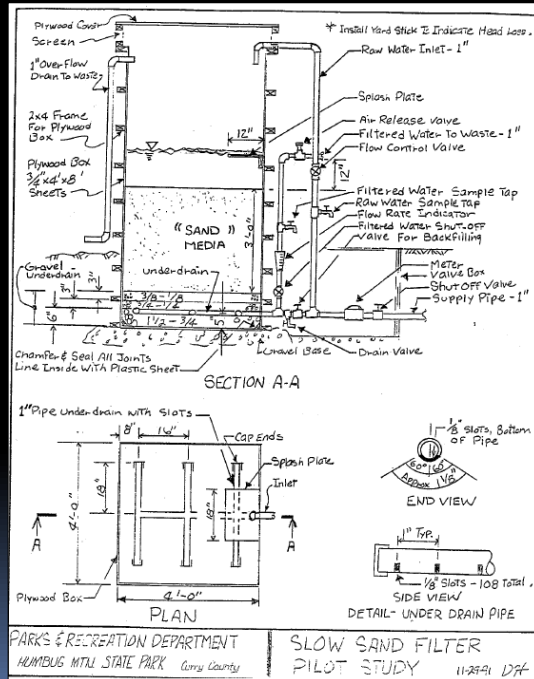 Plywood Cover
Screen
1" OverFlow
Drain To Waste
2x4 Frame
For Plywood
Box
Plywood Box
3/4"x4'x8'
Sheets
Gravel
Underdrain
3"
3"
6"
Chamfer & Seal All Joints
Line Inside With Plastic Sheet
* Install Yard Stick To Indicate Head Loss.
Raw Water Inlet - 1"
Splash Plate
Air Release Valve
Filtered Water To Waste - 1"
Flow Control Valve
12"
12"
Filtered Water Sample Tap
Raw Water Sample Tap
Flow Rate Indicator
Filtered Water Shut-Off
Valve For Backfilling
Meter
Valve Box
Shut Off Valve
Supply Pipe - 1"
3'-0"
"SAND"
MEDIA
underdrain
3/8 - 1/8
3/4 - 1/2
1 1/2 - 3/4
Gravel Base
Drain Valve
SECTION A-A
1" Pipe Underdrain with Slots
8"
16"
Cap Ends
Splash Plate
Inlet
18"
18"
4'-0"
A
A
Plywood Box
4'-0"
PLAN
1/8" Slots, Bottom
of Pipe
60° 60°
Approx 1 1/8"
END VIEW
1" Typ.
1/8" Slots - 108 Total.
SIDE VIEW
DETAIL - UNDER DRAIN PIPE
PARKS & RECREATION DEPARTMENT
HUMBUG MTN. STATE PARK Curry County
SLOW SAND FILTER
PILOT STUDY 11-29-91